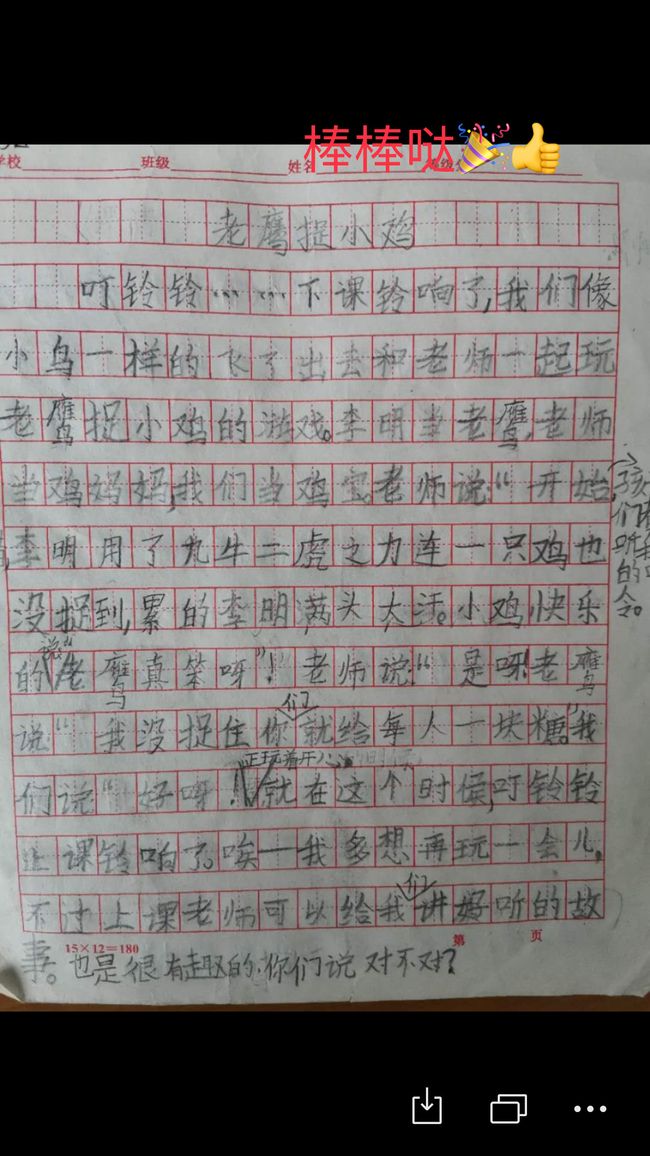 棒棒哒🎉👍
学校 班级 姓名
老鹰捉小鸡
叮铃铃……下课铃响了,我们像
小鸟一样的飞了出去和老师一起玩
老鹰捉小鸡的游戏。李明当老鹰,老师
当鸡妈妈,我们当鸡宝。老师说:“开始,
孩们
听
的
令。
李明用了九牛二虎之力连一只鸡也
没捉到,累的李明满头大汗。小鸡快乐
的说“老鹰真笨呀”!老师说:“是呀!老鹰
说“我没捉住你们就给每人一块糖。”我
正玩着开心
们说“好呀!就在这个时候,叮铃铃
上课铃响了。唉——我多想再玩一会儿,
不过上课老师可以给我们讲好听的故
事。也是很有趣的,你们说对不对?
15×12=180 第 页